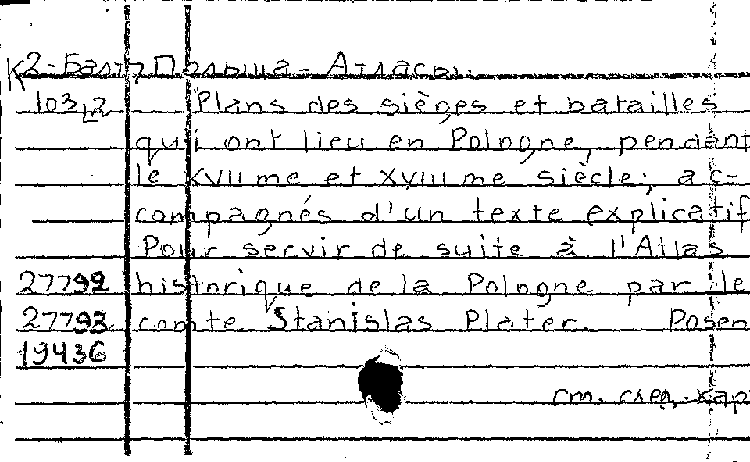 К2-Балт Польша - Атласы.
103 L2 Plans des sièges et batailles
qui ont lieu en Pologne, pendant
le XVIIme et XVIIIme siècle; ac-
compagnés d'un texte explicatif
Pour servir de suite à l'Atlas
27792 historique de la Pologne par le
27793 comte Stanislas Plater. Posen
19436
см. след. кар